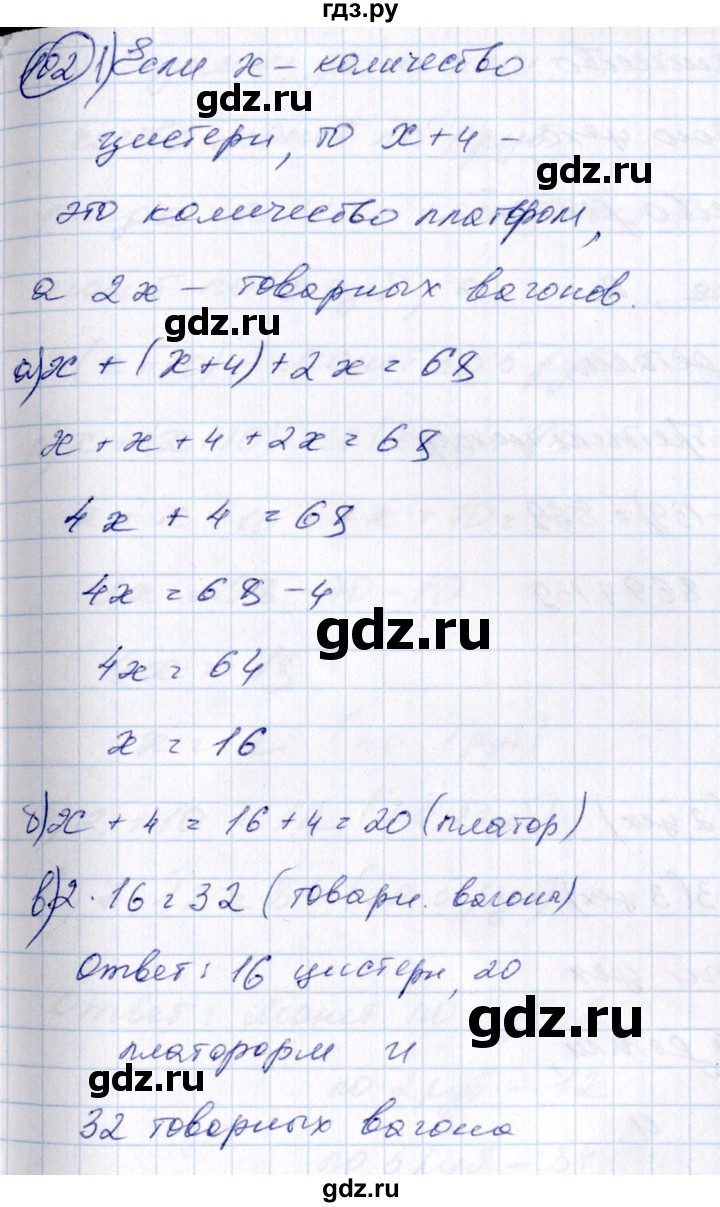 гдз.ру
102 1) Если x – количество
gdz.ru
цистерн, то x + 4 –
gdz.ru
это количество платформ,
а 2x – товарных вагонов.
gdz.ru
а) x + (x+4) + 2x = 68
x + x + 4 + 2x = 68
4x + 4 = 68
4x = 68 - 4
gdz.ru
4x = 64
x = 16
б) x + 4 = 16 + 4 = 20 (платфор)
gdz.ru
в) 2 · 16 = 32 (товарн. вагона)
Ответ: 16 цистерн, 20
gdz.ru
платформ и
gdz.ru
32 товарных вагона
gdz.ru